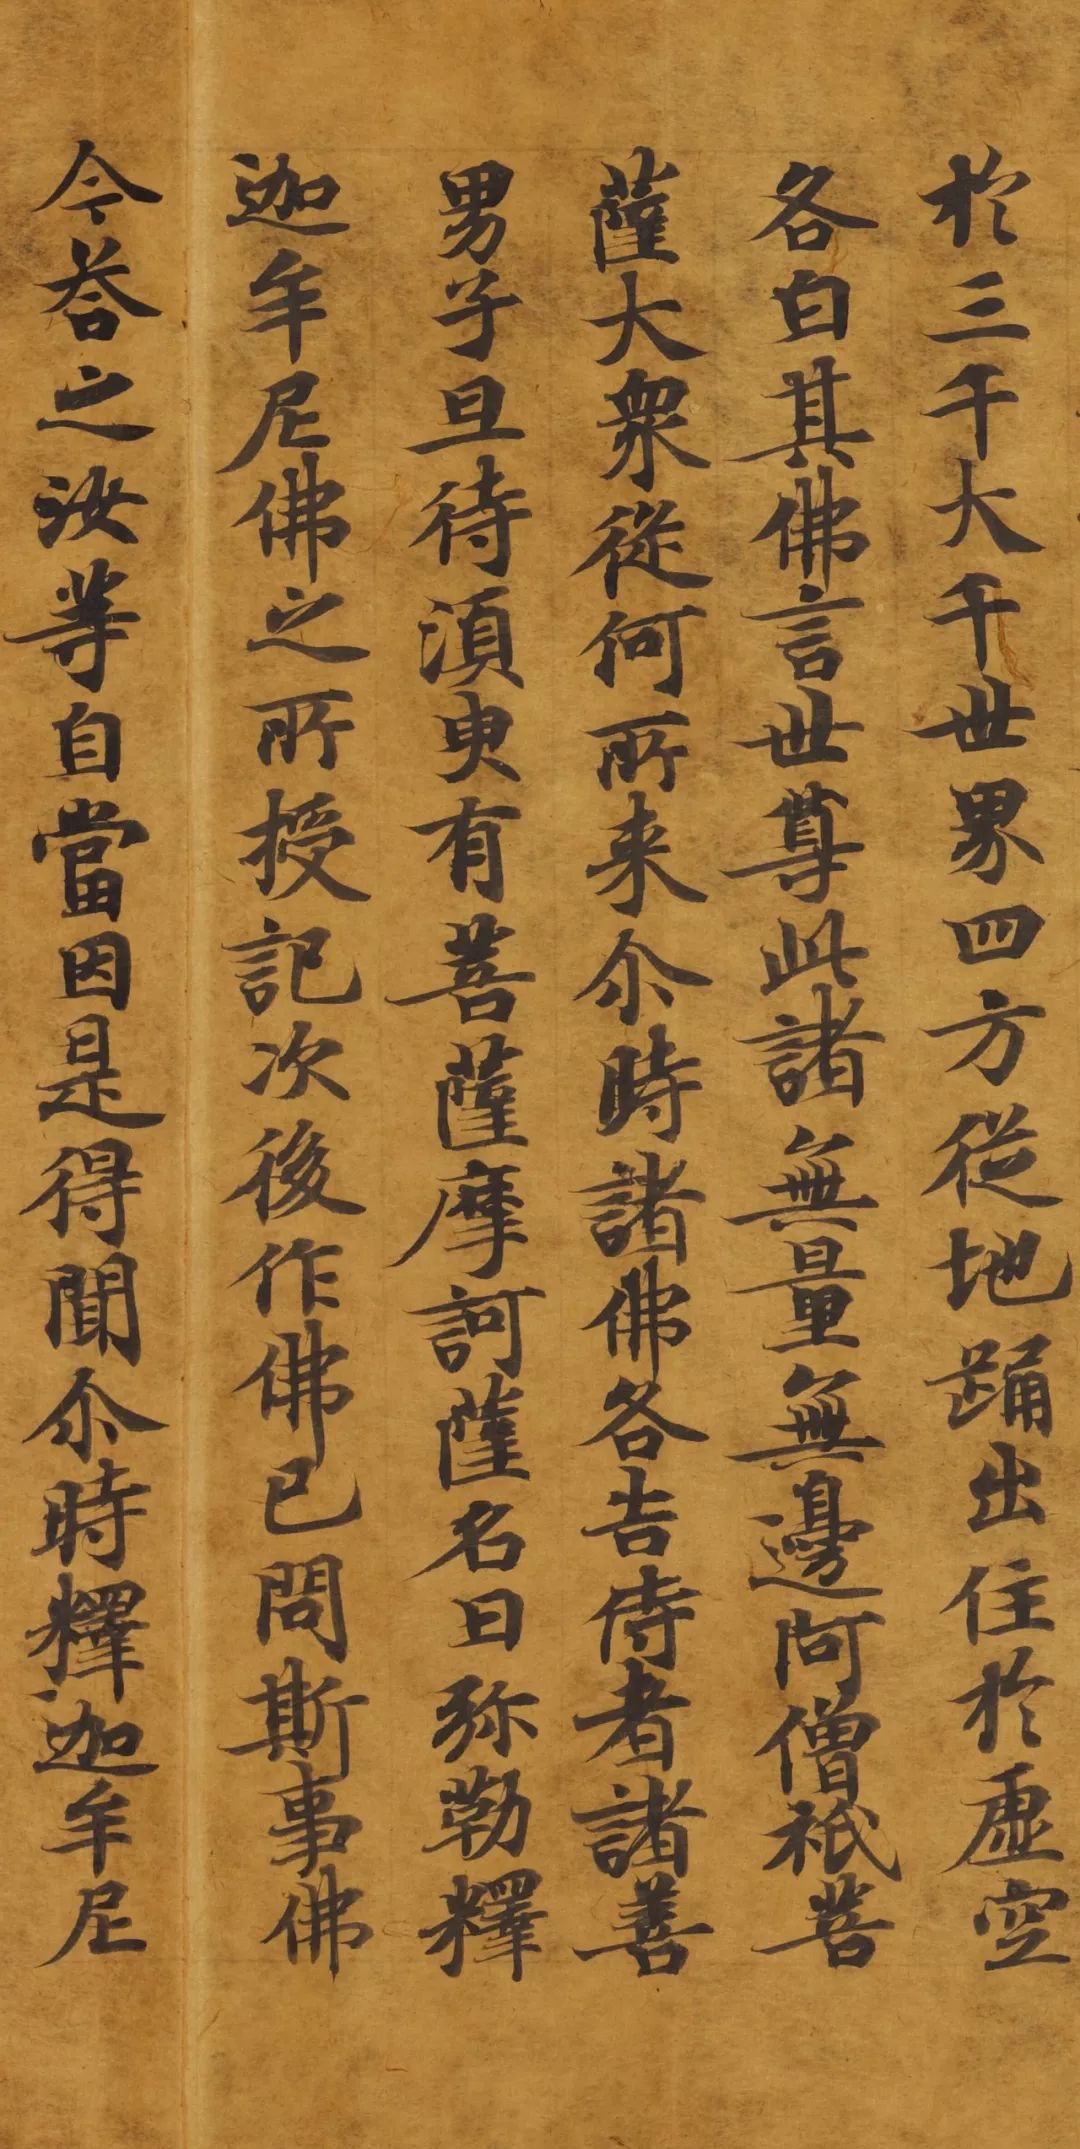 於三千大千世界四方從地踊出住於虛空
各白其佛言世尊此諸無量無邊阿僧祇菩
薩大衆從何所来尒時諸佛各告侍者諸善
男子且待須臾有菩薩摩訶薩名曰弥勒釋
迦牟尼佛之所授記次後作佛已問斯事佛
今荅之汝等自當因是得聞尒時釋迦牟尼